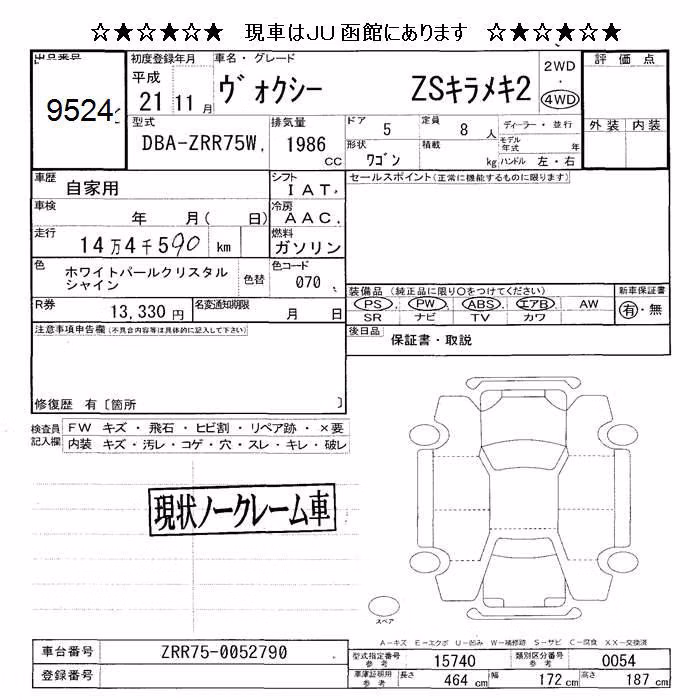 ☆★☆★☆★ 現車はJU函館にあります ☆★☆★☆★
出品番号 初度登録年月 車名・グレード 2WD 評価点
9524 平成 21 11月 ヴォクシー ZSキラメキ2 ・ 4WD
型式 排気量 ドア 定員 ディーラー・並行 外装 内装
DBA-ZRR75W 1986 5 8人 モデル年式 年
cc 形状 ワゴン 積載 kg ハンドル 左・右
車歴 自家用 シフト IAT セールスポイント(正常に機能するものに限ります)
車検 年 月( 日) 冷房 AAC
走行 14万4千590 km 燃料 ガソリン
色 ホワイトパールクリスタルシャイン 色替 色コード 070
装備品(純正品に限り○をつけてください) 新車保証書
R券 13,330円 名変通知期限 月 日 PS PW ABS エアB AW 有・無
SR ナビ TV カワ
注意事項申告欄(不具合内容等は具体的に記入して下さい) 後日品 保証書・取説
修復歴 有〔箇所 〕
検査員記入欄 FW キズ・飛石・ヒビ割・リペア跡・×要
内装 キズ・汚レ・コゲ・穴・スレ・キレ・破レ
現状ノークレーム車
スペア
A-キズ E-エクボ U-凹み W-補修跡 S-サビ C-腐食 XX-交換済
車台番号 ZRR75-0052790 型式指定番号 参考 15740 類別区分番号 参考 0054
登録番号 車庫証明用 参考 長さ 464 cm 幅 172 cm 高さ 187 cm